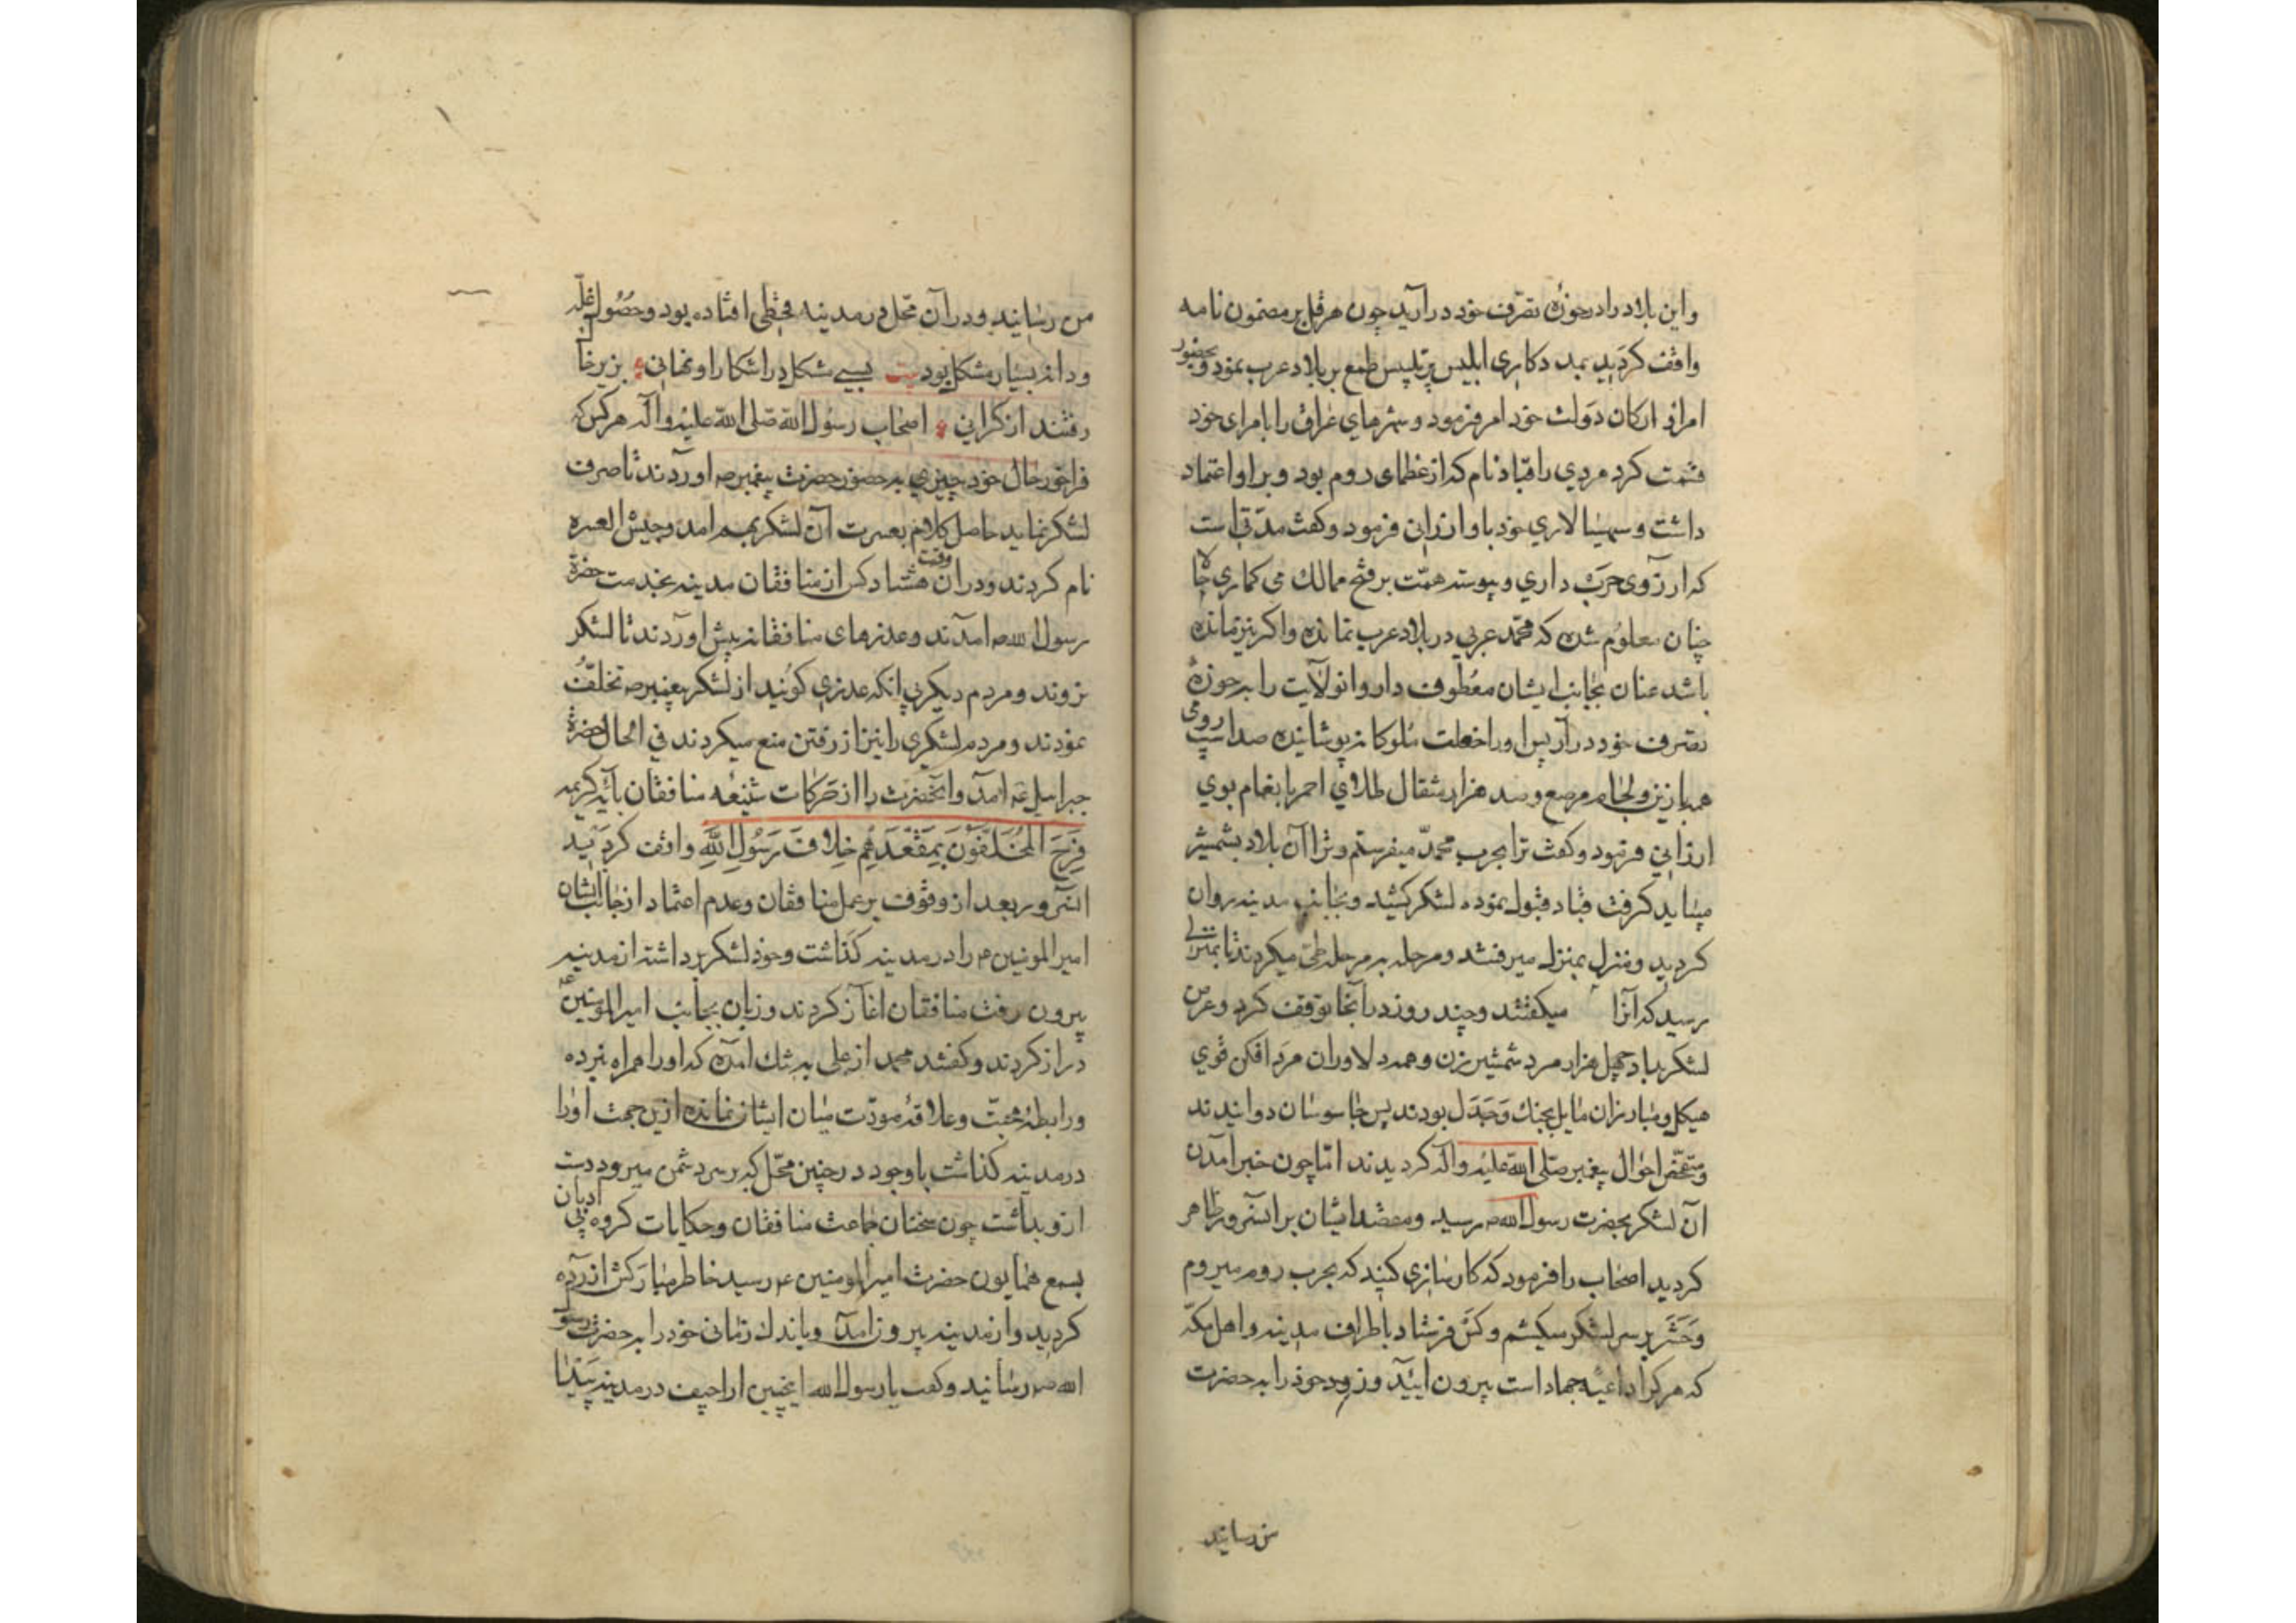 واین بلاد را در حوزهٔ تصرّف خود درآرید چون هرقل بر مضمون نامه
واقف کردید بمدد کاری ابلیس پرتلبیس طمع بر بلاد عرب نمود و بحضور
امرا ارکان دولت خود امر فرمود و شهرهای عراق را بامرای خود
قسمت کرد مردی را قباد نام که از عظمای روم بود و بر او اعتماد
داشت و سپهسالاری خود باو ارزانی فرمود و کفت مدّتی است
که ارزوی حرب داری و پیوسته همّت بر فتح ممالک می کماری حالا
چنان معلوم شده که محمّد عربی در بلاد عرب نمانده و اکر نیز مانده
باشد عنان بجانب ایشان معطوف دار و انولایت را به حوزهٔ
تصرف خود درآر پس او را خلعت ملوکانه پوشانیده صد اسپ رومی
همه با زین و لجام مرصع و صد هزار مثقال طلای احمر بانعام بوی
ارزانی فرمود و کفت ترا بحرب محمّد میفرستم و ترا آن بلاد بشمشیر
میباید کرفت قباد قبول نموده لشکر کشید و بجانب مدینه روان
کردید و منزل بمنزل میرفتند و مرحله به مرحله طی میکردند تا بمنزلی
رسید که آنرا میکفتند و چند روز در آنجا توقف کرد و عرض
لشکر بداد چهل هزار مرد شمشیر زن و همه دلاوران مرد افکن قوی
هیکل و مبارزان مایل بجنک و جدل بودند پس جاسوسان دوانیدند
و متفحّص احوال پیغمبر صلّی الله علیه و آله کردیدند امّا چون خبر آمدن
آن لشکر بحضرت رسول الله ص رسید و مقصد ایشان بر انسرور ظاهر
کردید اصحاب را فرمود که کارسازی کنید که بحرب روم میروم
و حَشَر بر سر لشکر میکشم و کس فرستاد باطراف مدینه و اهل مکّه
که هر کرا داعیهٔ جهاد است بیرون ایید و زود خود را به حضرت
من رسانید
من رسانید و در آن محل در مدینه قحطی افتاده بود و حصول غلّه
و دانه بسیار مشکل بود بیت بسی مشکل در اشکارا و نهانی بزیر خاک
رفتند از کرانی اصحاب رسول الله صلی الله علیه و آله هر کس که
فراخور حال خود چیزی به حضور حضرت پیغمبر ص اوردند تا صرف
لشکر نماید حاصل کلام بعسرت آن لشکر بهم امد و جیش العسره
نام کردند و در ان وقت هشتاد کس از منافقان مدینه بخدمت حضرة
رسول الله ص امدند و عذرهای منافقانه پیش اوردند تا لشکر
نروند و مردم دیکر بی انکه عذری کویند از لشکر پیغمبر ص تخلّف
نمودند و مردم لشکری را نیز از رفتن منع میکردند فی الحال حضرة
جبرائیل ع آمد و آنحضرت را از حرکات شنیعه منافقان بآیه کریمه
فَرِحَ المُخَلَّفُونَ بِمَقْعَدِهِم خِلافَ رَسُولِ اللهِ واقف کردانید
انسرور بعد از وقوف بر عمل منافقان و عدم اعتماد از جانب ایشان
امیر المؤمنین ع را در مدینه کذاشت و خود لشکر برداشته از مدینه
بیرون رفت منافقان اغاز کردند و زبان بجانب امیر المؤمنین ع
دراز کردند و کفتند محمد از علی به تنک امده که او را همراه نبرده
و رابطهٔ محبّت و علاقهٔ مودّت میان ایشان نمانده ازین جهت او را
در مدینه کذاشت با وجود در چنین محّل که بر سر دشمن میرود دست
ازو بداشت چون سخنان جماعت منافقان و حکایات کروه بی ادبان
بسمع همایون حضرت امیر المومنین ع رسید خاطر مبارکش ازرده
کردید و از مدینه بیرون امد و باندک زمانی خود را به حضرت رسول
الله ص رسانید و کفت یا رسول الله اینچنین اراجیف در مدینه پیدا